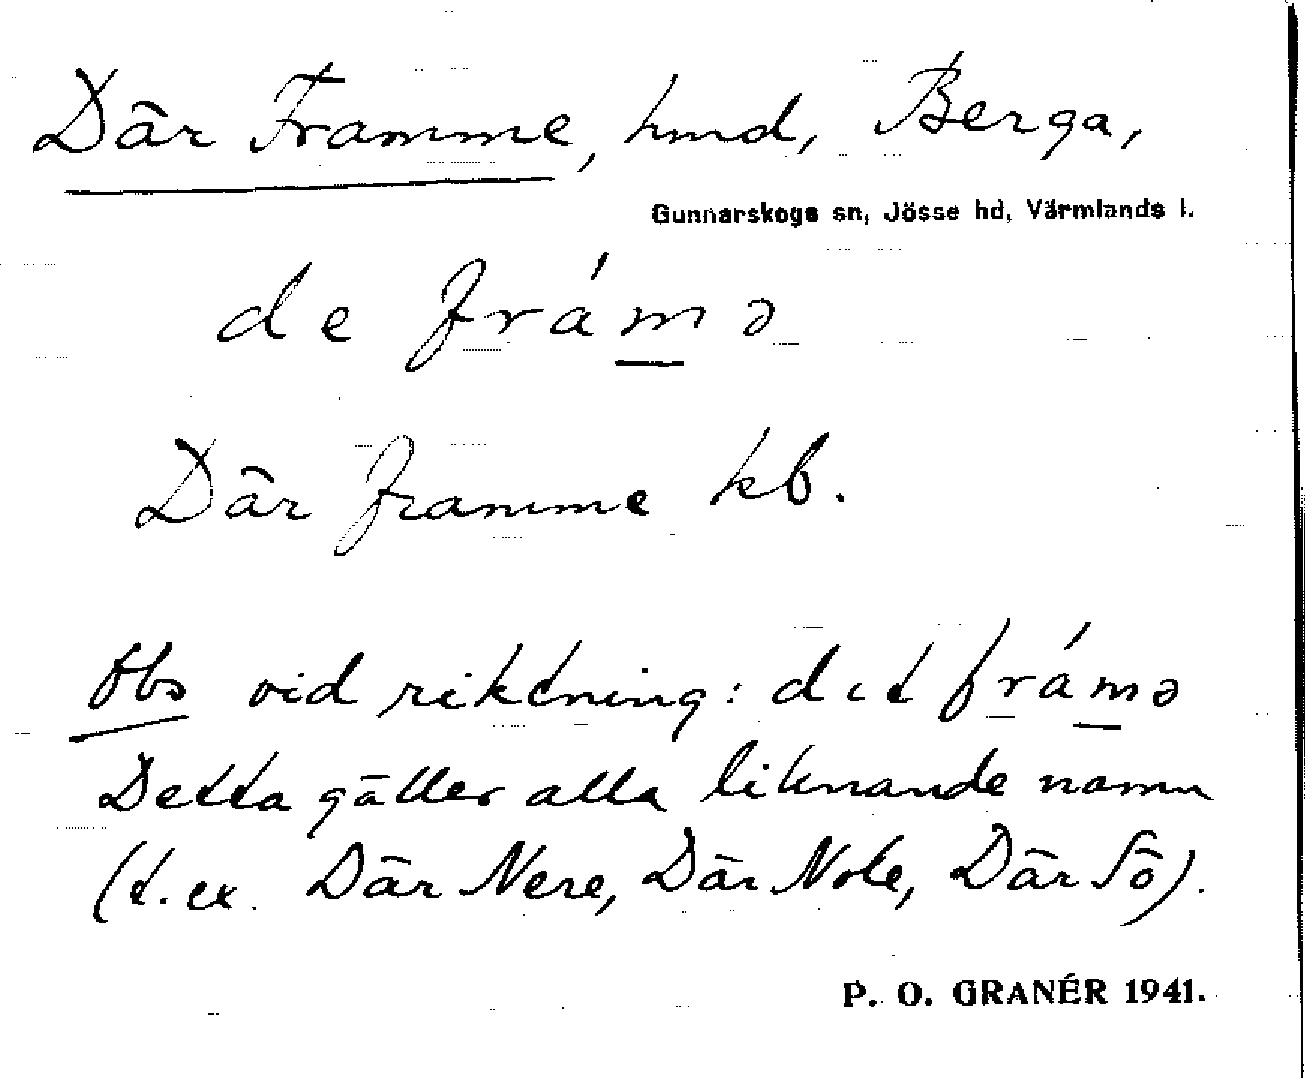 Där Framme, hmd, Berga,
Gunnarskogs sn, Jösse hd, Värmlands l.
de fra´mə
Där framme kb.
Obs vid riktning: dit fra´mə
Detta gäller alla liknande namn
(t.ex. Där Nere, Där Nole, Där Sö).
P. O. GRANÉR 1941.